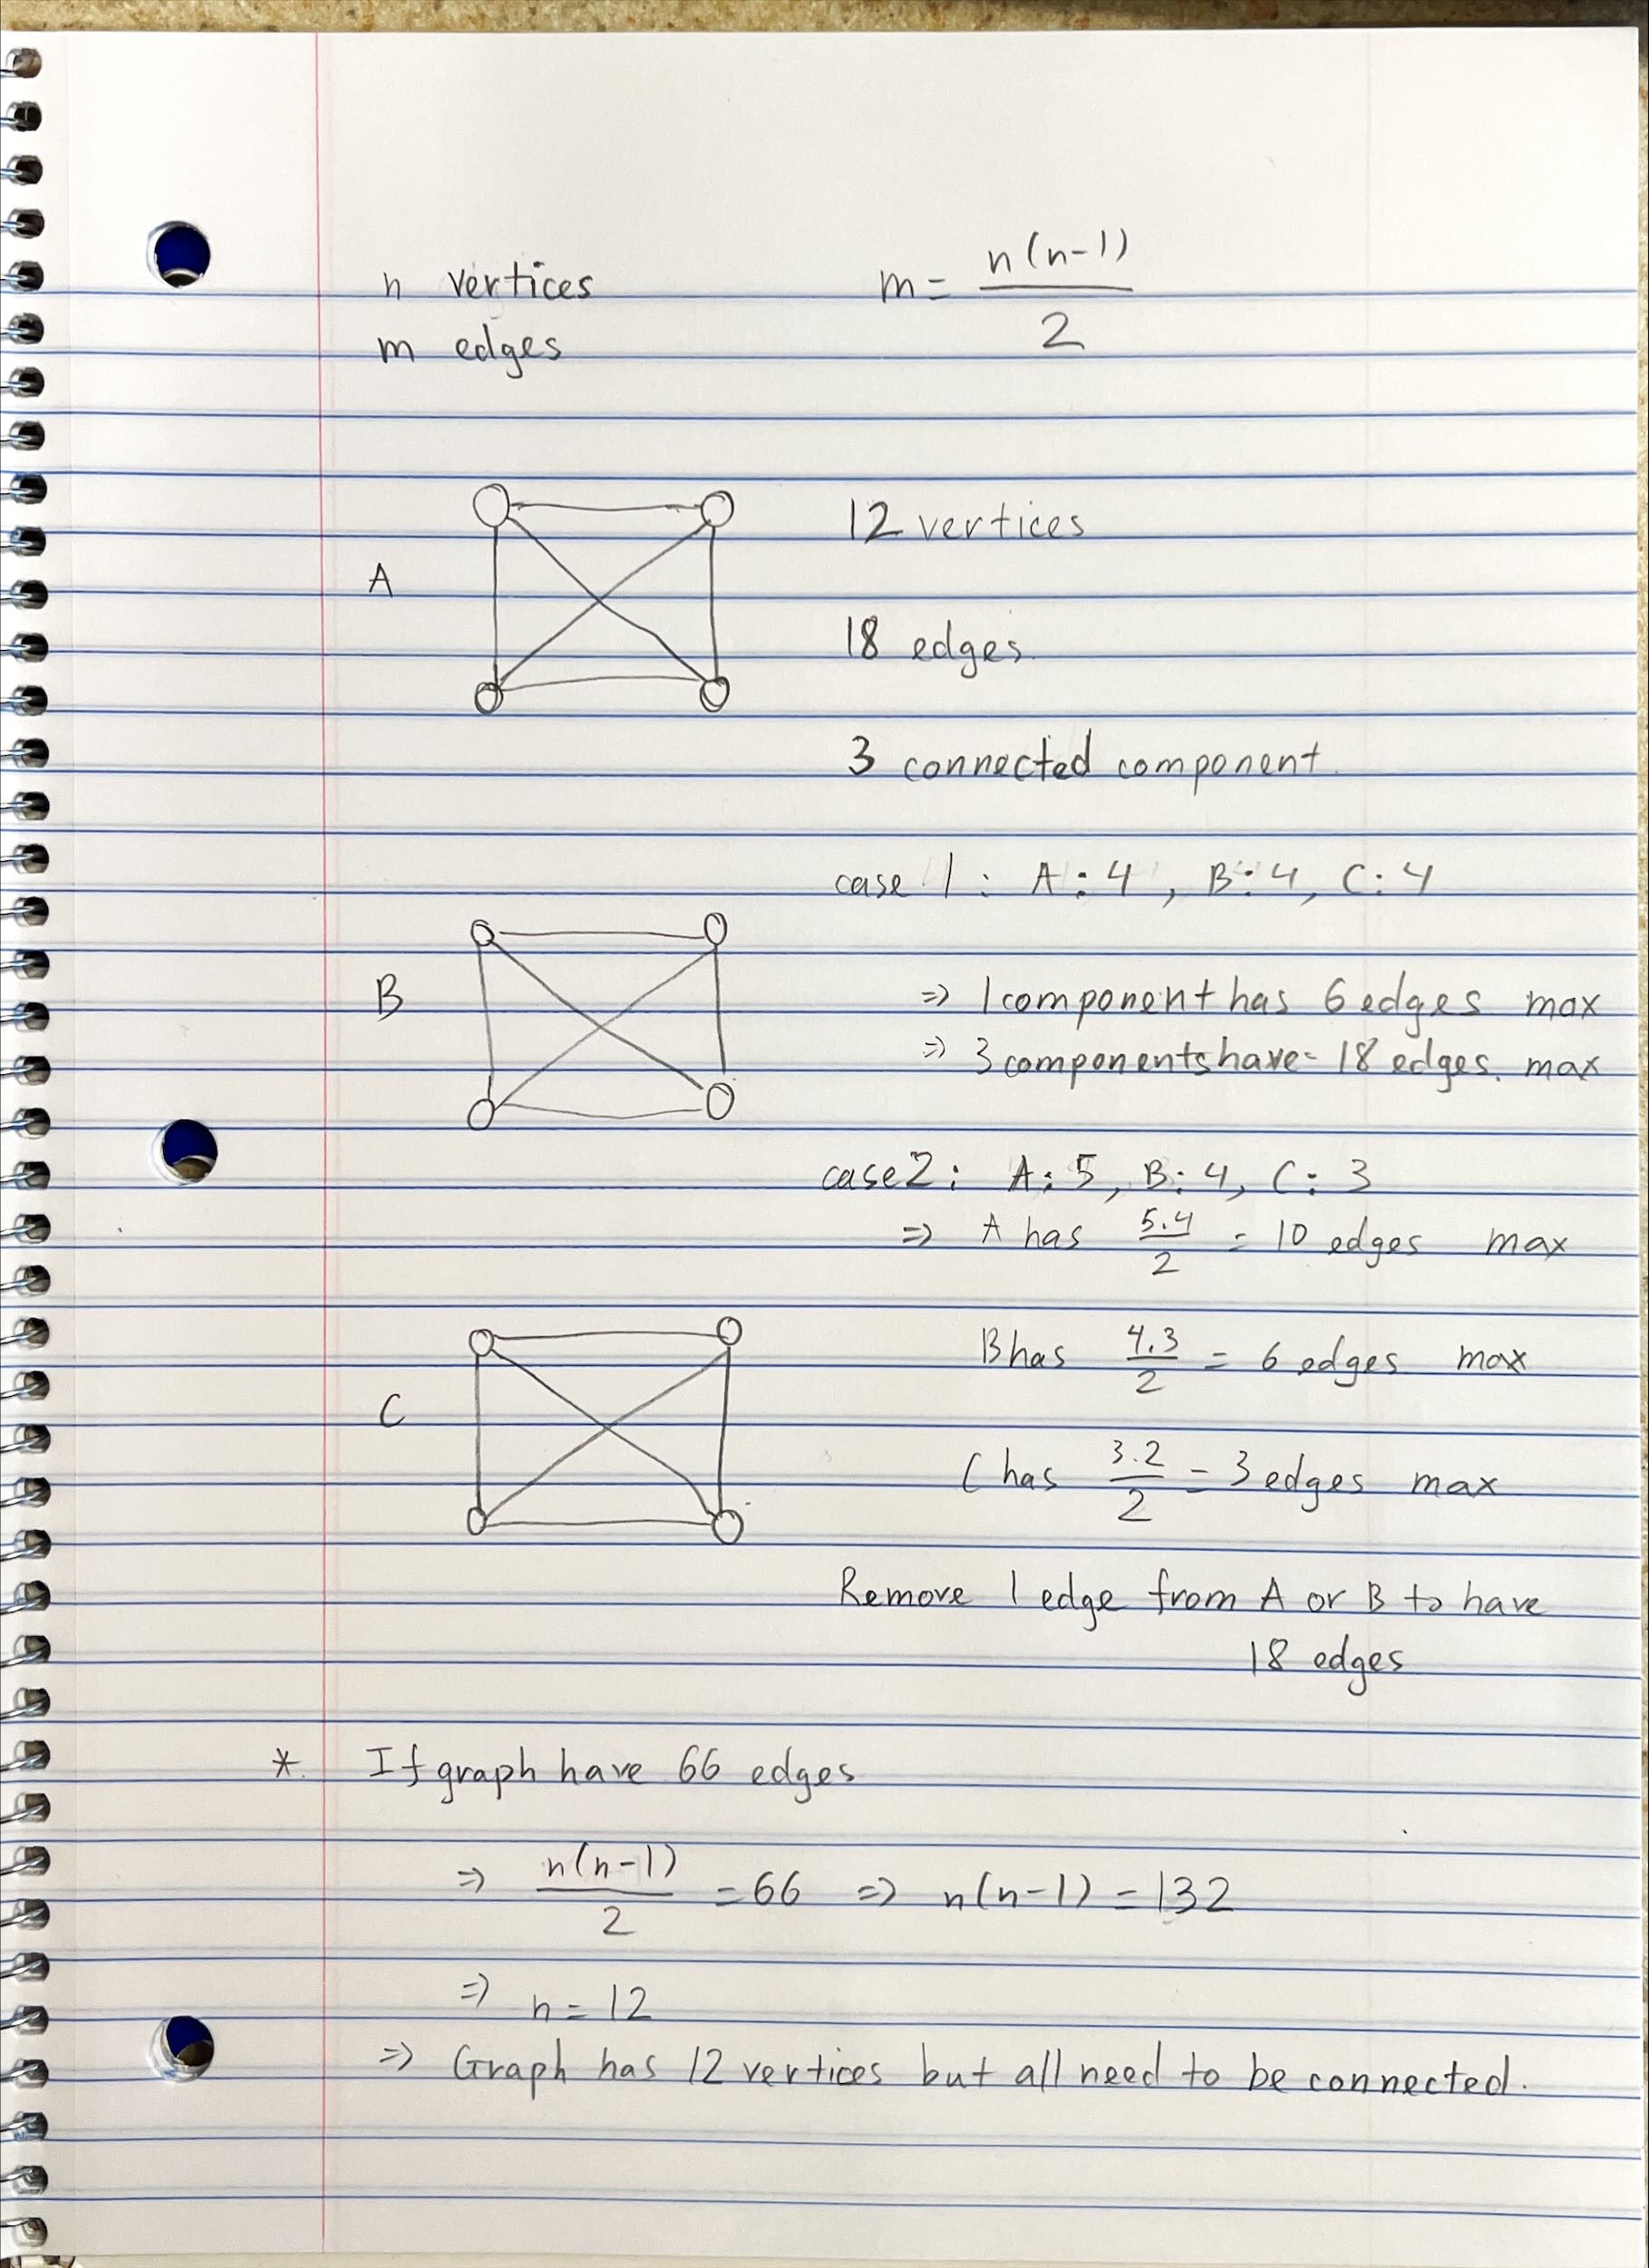 n vertices
m = n(n-1)/2
m edges
A
12 vertices
18 edges.
3 connected component.
case 1 : A : 4 , B : 4, C : 4
B
=> 1 component has 6 edges max
=> 3 components have = 18 edges. max
case 2 : A : 5, B : 4, C : 3
=> A has 5.4/2 = 10 edges max
C
B has 4.3/2 = 6 edges max
C has 3.2/2 = 3 edges max
Remove 1 edge from A or B to have
18 edges
*. If graph have 66 edges
=> n(n-1)/2 = 66 => n(n-1) = 132
=> n = 12
=> Graph has 12 vertices but all need to be connected.